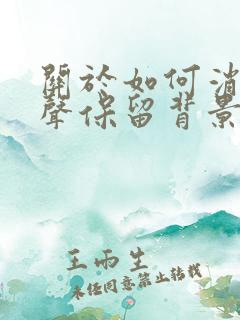 關於如何消
聲保留背景
王雨生
未经同意禁止转载